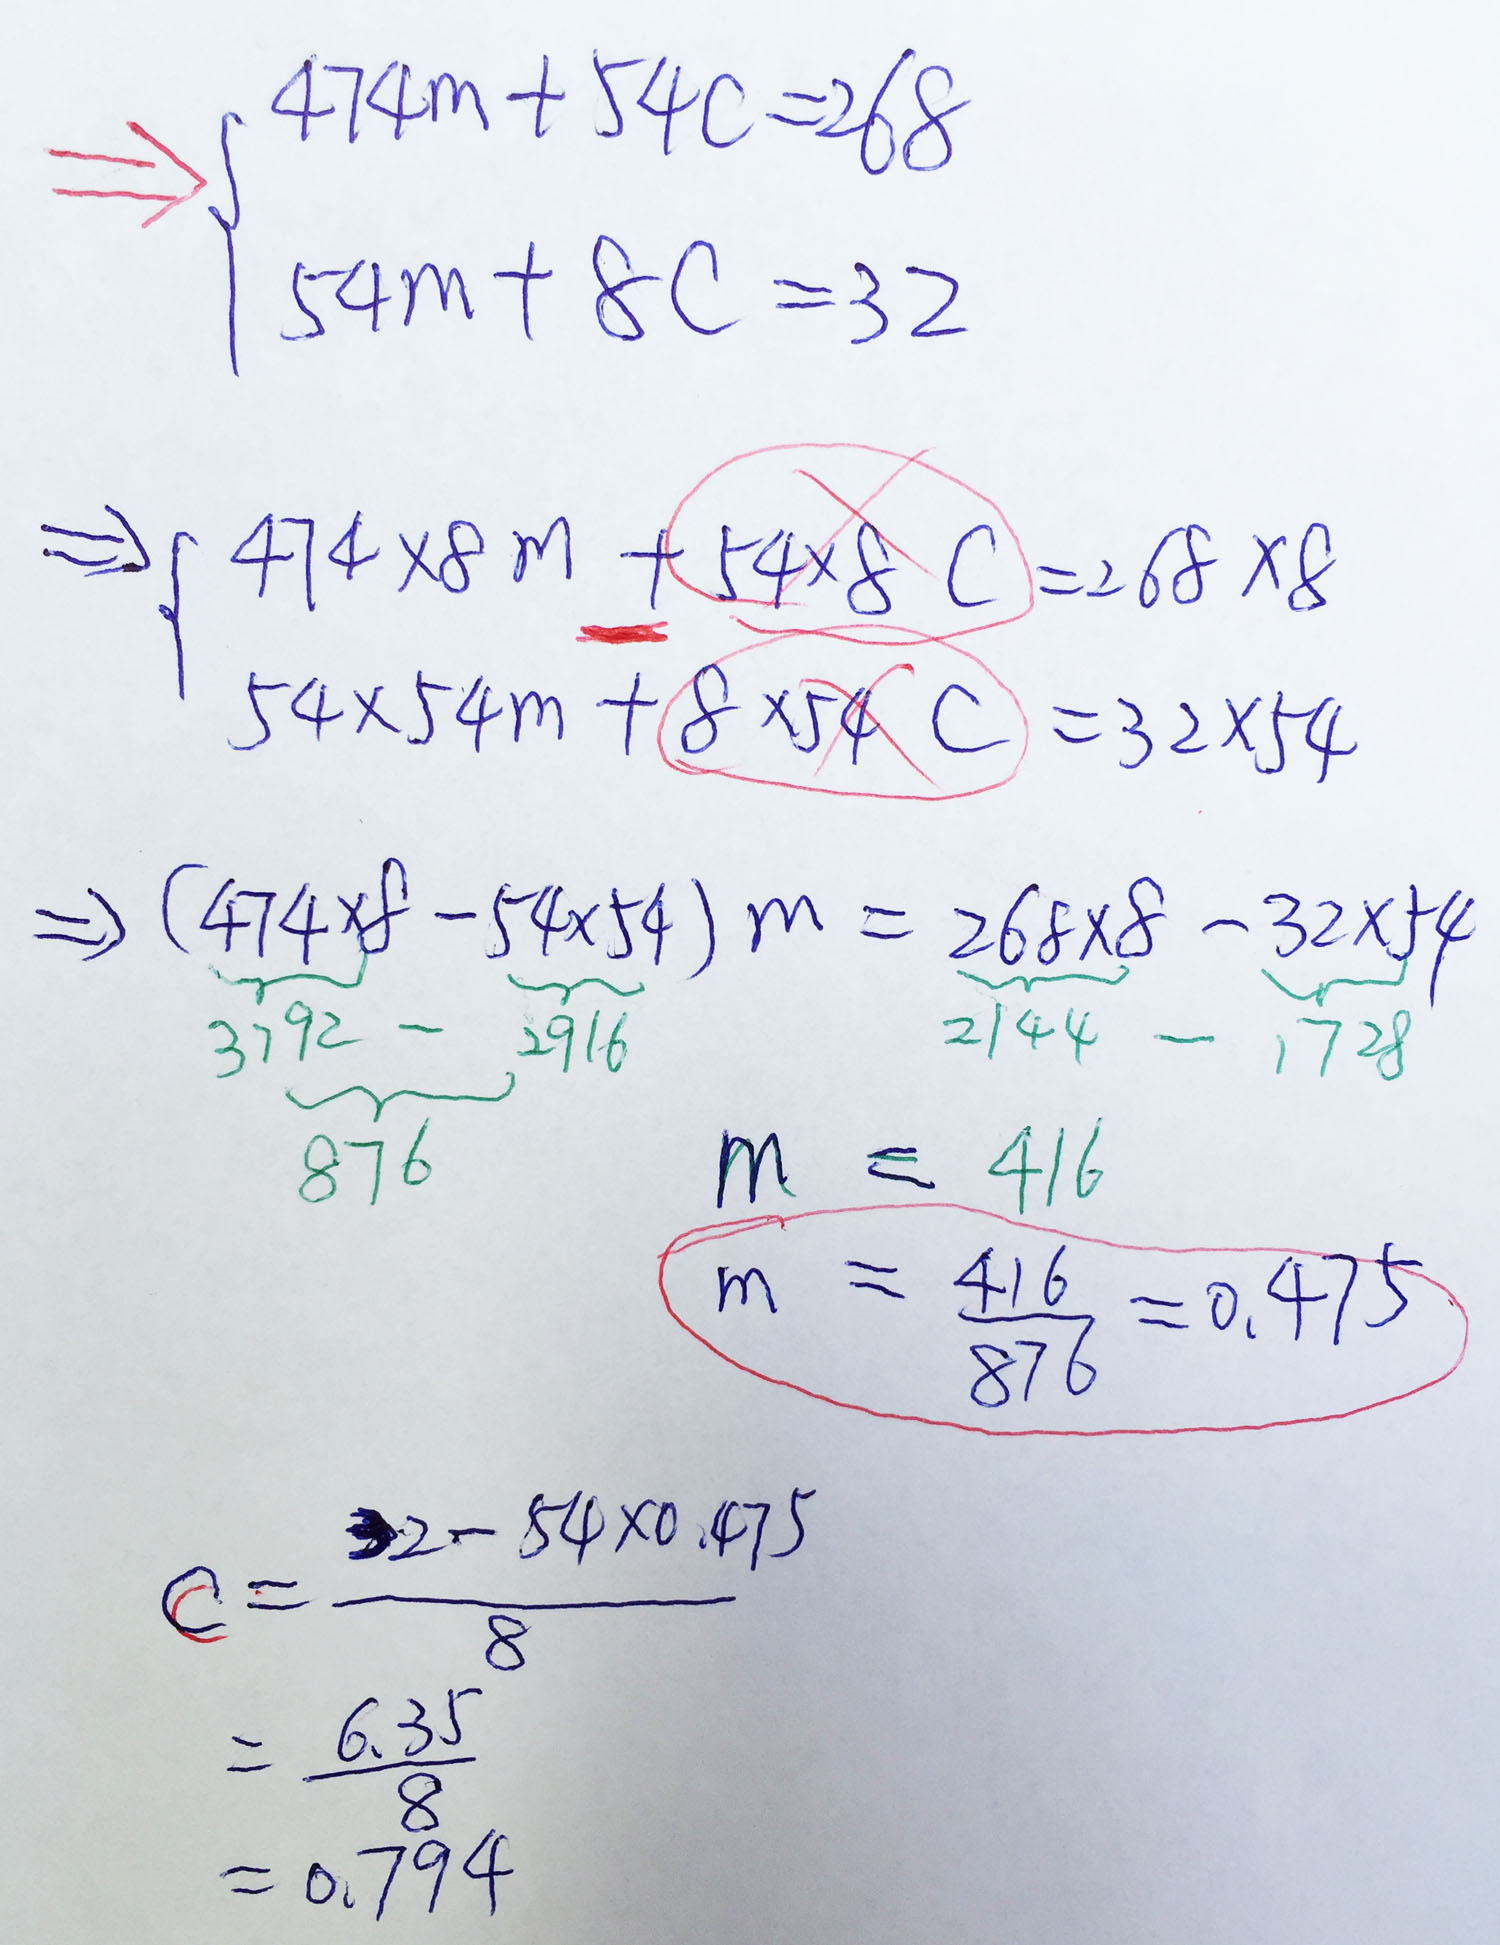 ⇒ { 474m + 54C = 268
54m + 8C = 32
⇒ { 474×8 m + 54×8 C = 268×8
54×54m + 8×54 C = 32×54
⇒ (474×8 - 54×54) m = 268×8 - 32×54
3792 - 2916 2144 - 1728
876 m = 416
m = 416/876 = 0.475
C = (32 - 54×0.475)/8
= 6.35/8
= 0.794